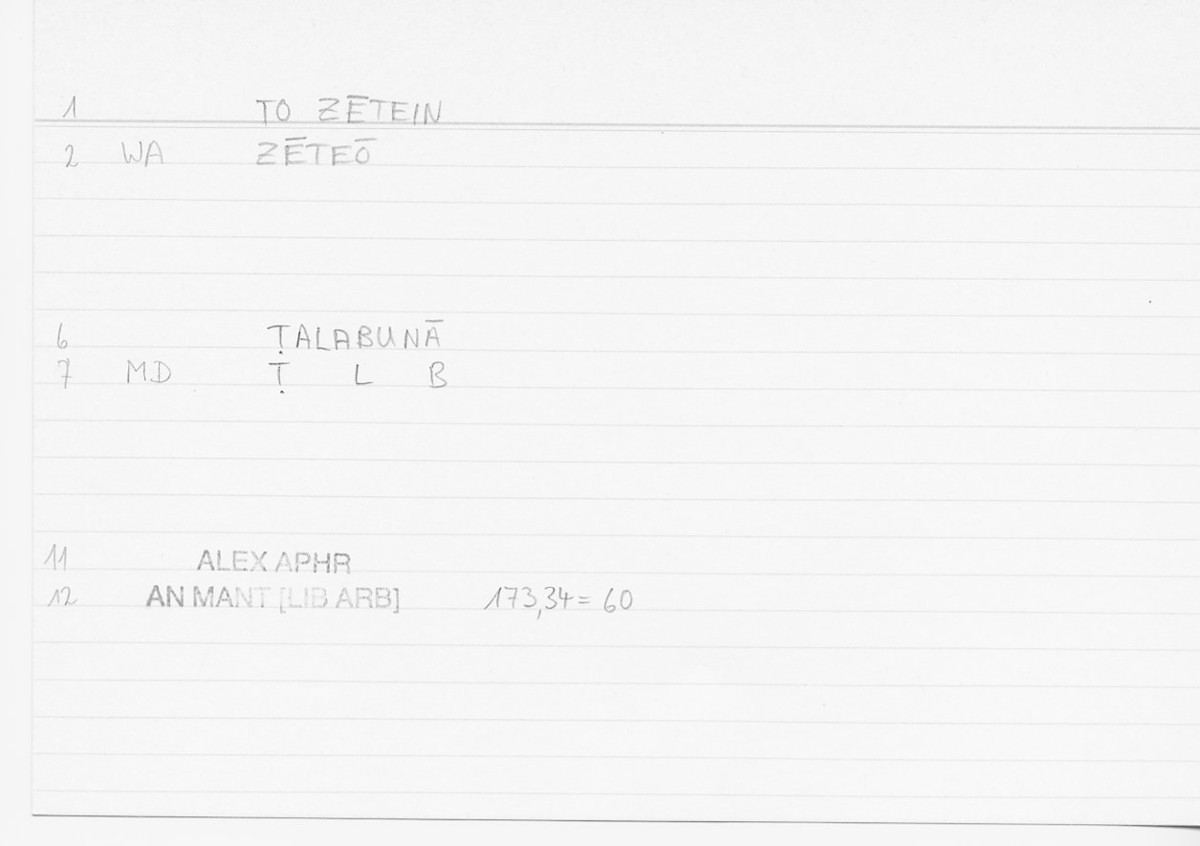 1 TO ZĒTEIN
2 WA ZĒTEŌ
6 ṬALABUNĀ
7 MD Ṭ L B
11 ALEX APHR
12 AN MANT [LIB ARB] 173,34 = 60